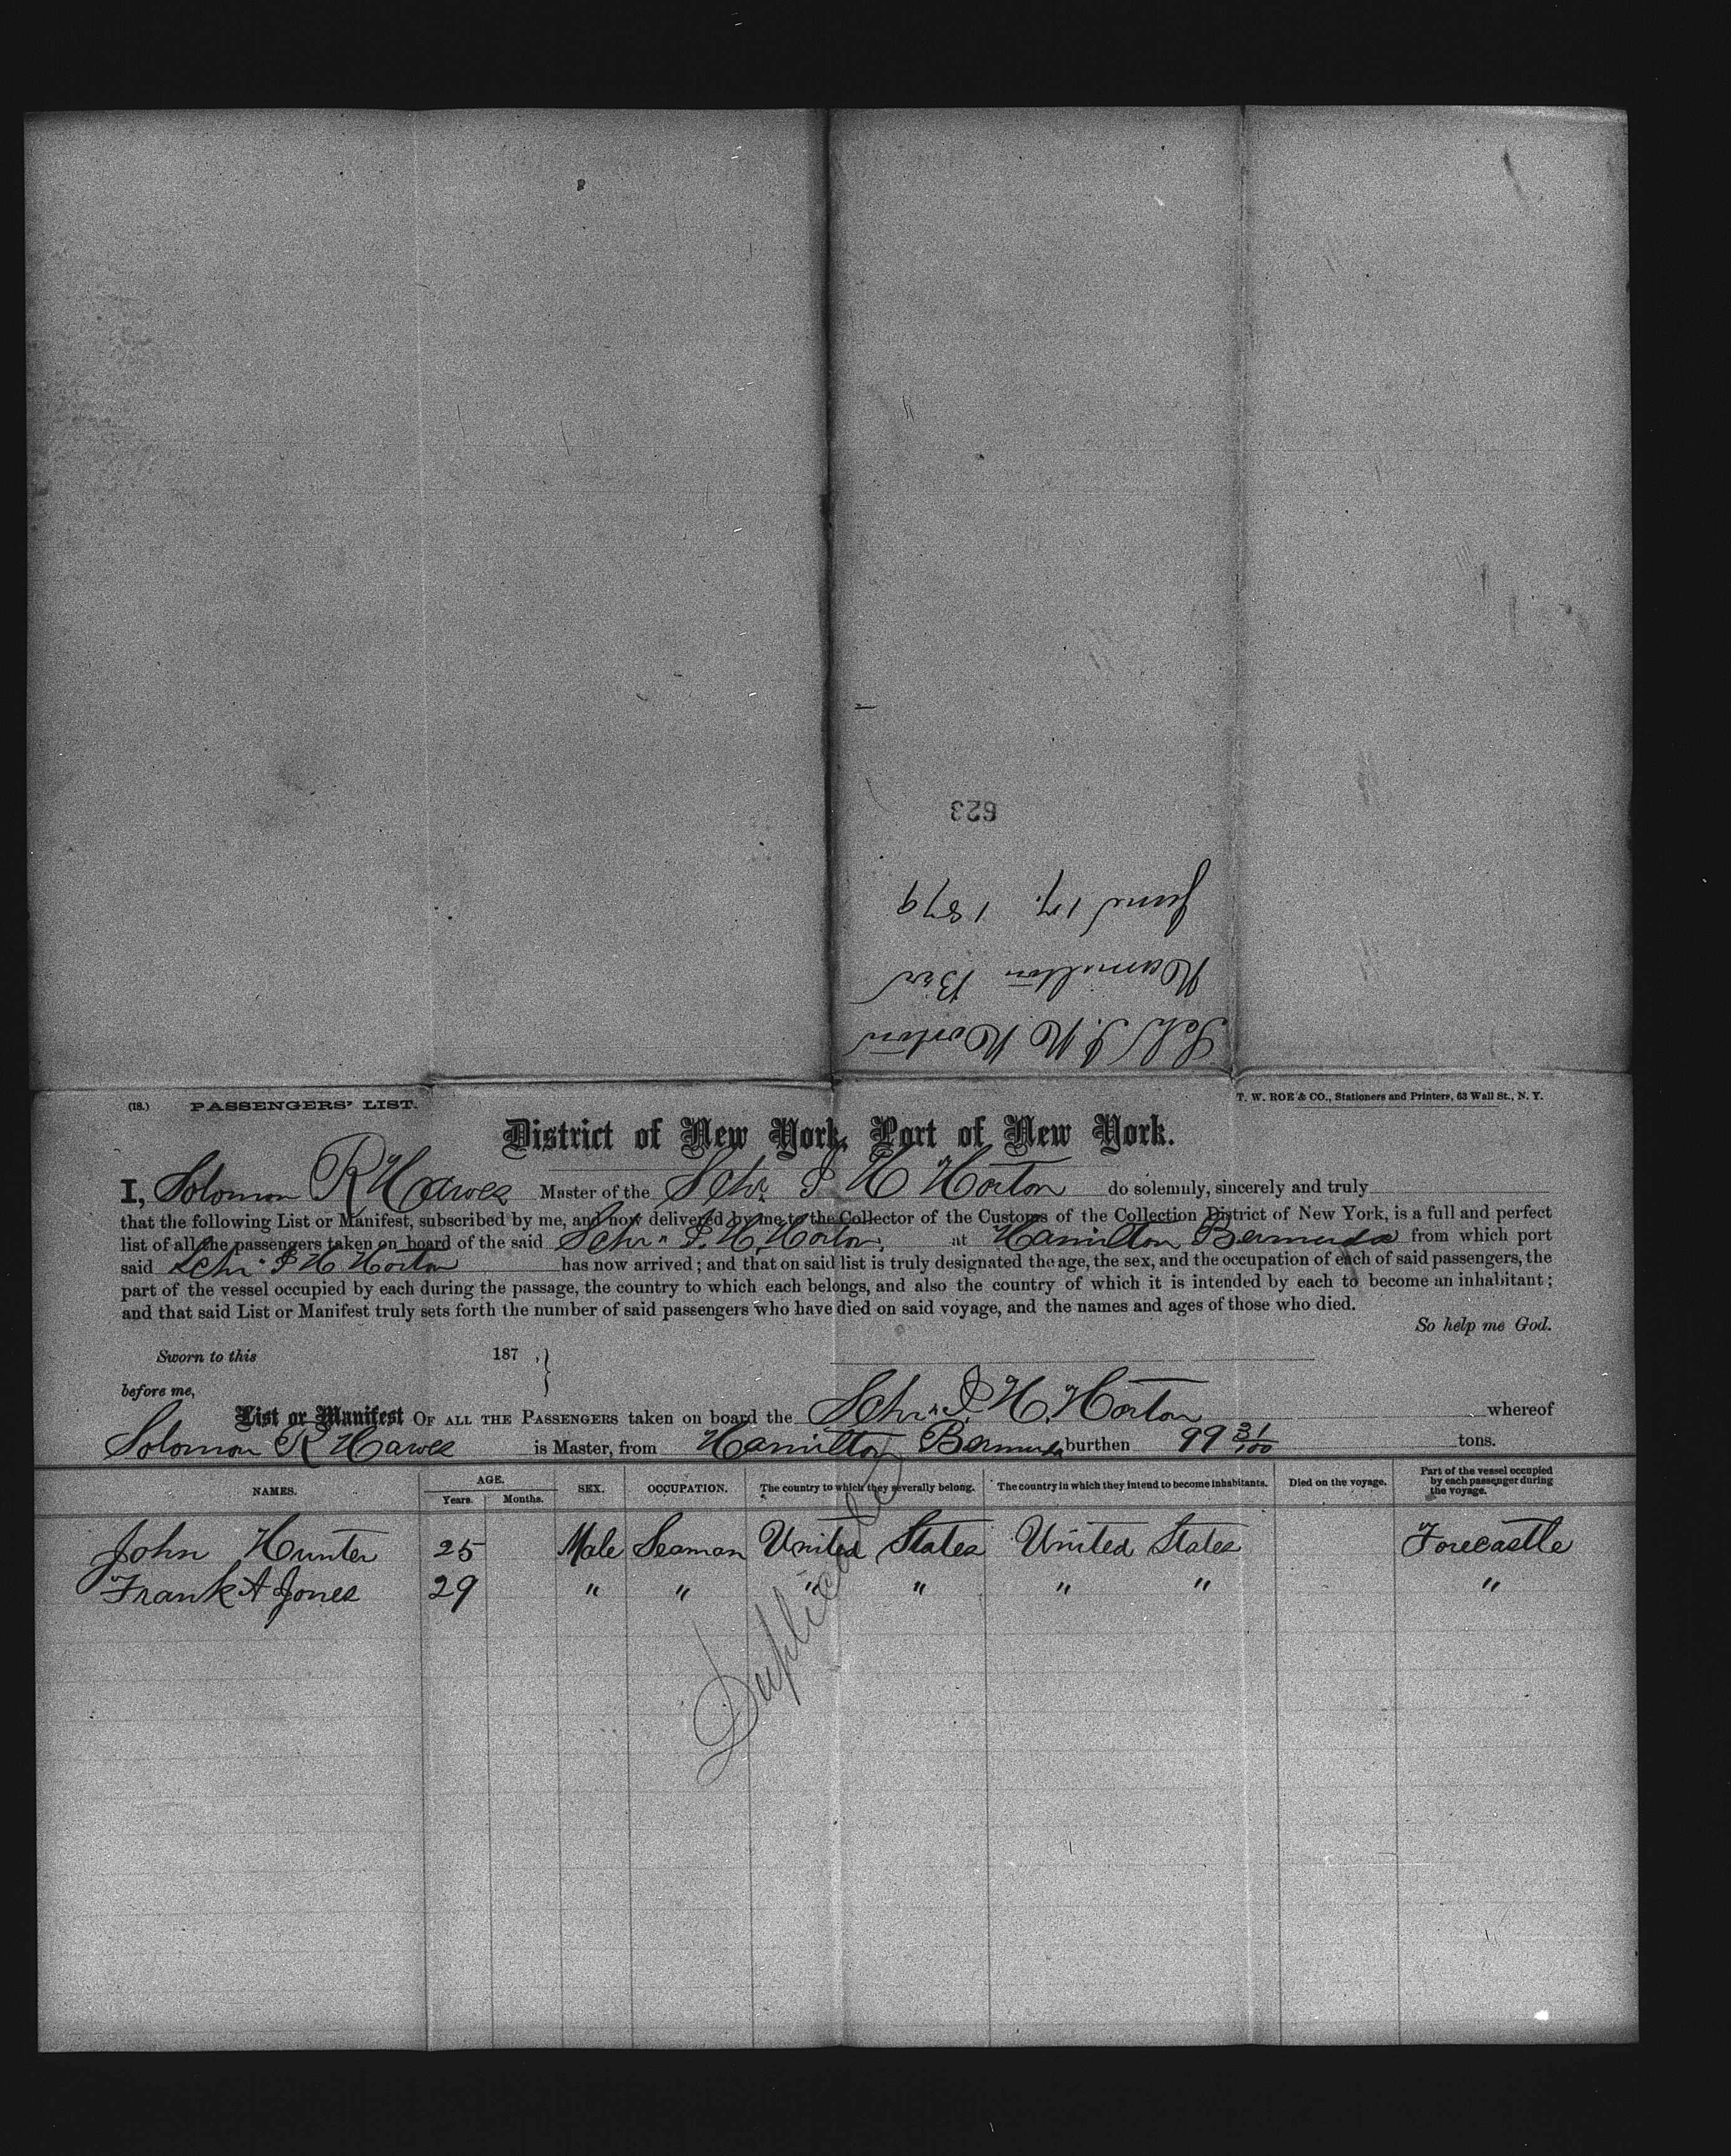 623
June 17. 1879
Hamilton Ber
Sch J. H Horton
(18.) PASSENGERS' LIST.
T. W. ROE & CO., Stationers and Printers, 63 Wall St., N. Y.
District of New York, Port of New York.
I, Solomon R Hawes Master of the Schr. J H Horton do solemnly, sincerely and truly
that the following List or Manifest, subscribed by me, and now delivered by me to the Collector of the Customs of the Collection District of New York, is a full and perfect
list of all the passengers taken on board of the said Schr. J. H. Horton, at Hamilton Bermuda from which port
said Schr J H Horton has now arrived; and that on said list is truly designated the age, the sex, and the occupation of each of said passengers, the
part of the vessel occupied by each during the passage, the country to which each belongs, and also the country of which it is intended by each to become an inhabitant;
and that said List or Manifest truly sets forth the number of said passengers who have died on said voyage, and the names and ages of those who died.
So help me God.
Sworn to this 187 ,
before me,
List or Manifest OF ALL THE PASSENGERS taken on board the Schr. J. H. Horton whereof
Solomon R Hawes is Master, from Hamilton Bermuda burthen 99 31/100 tons.
NAMES. AGE. Years. Months. SEX. OCCUPATION. The country to which they severally belong. The country in which they intend to become inhabitants. Died on the voyage. Part of the vessel occupied by each passenger during the voyage.
John Hunter 25 Male Seaman United States United States Forecastle
Frank A Jones 29 " " " " " " "
Duplicate